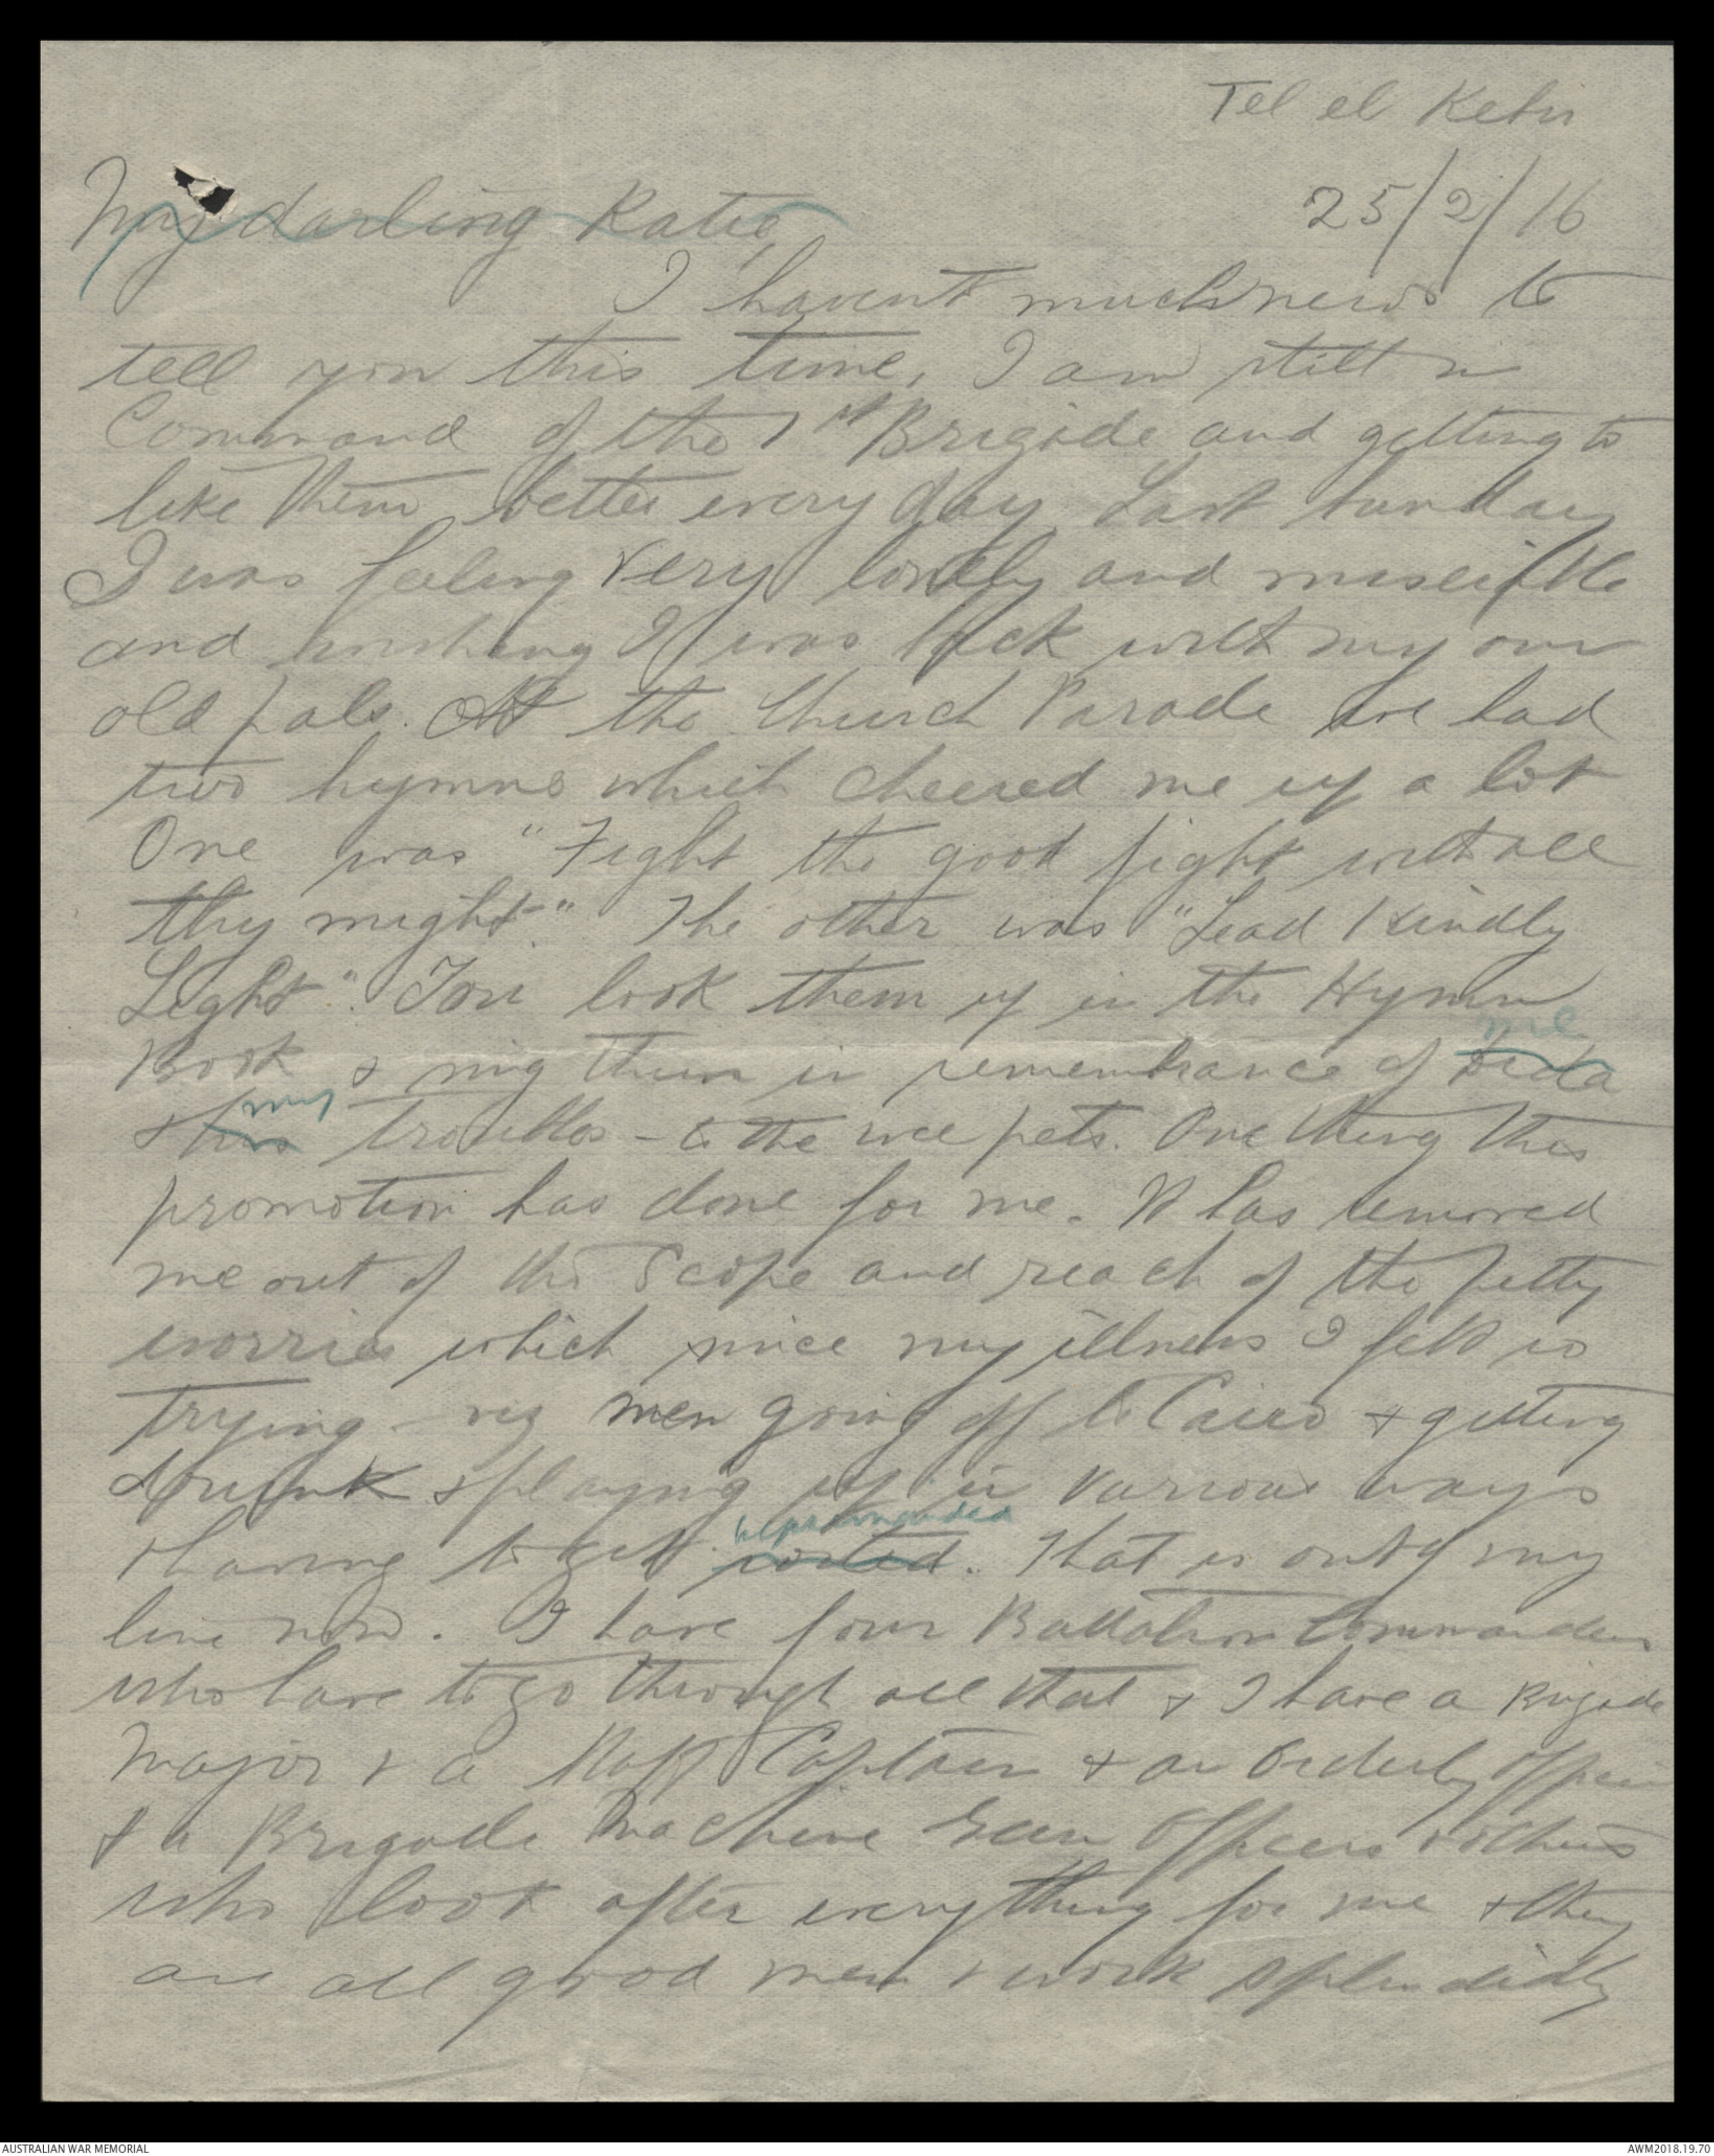 Tel el Kebir
25/2/16
My darling Katie,
I havent much news to
tell you this time, I am still in
Command of the 1st Brigade and getting to
like them better every day Last Sunday
I was feeling very lonely and miserable
and wishing I was back with my own
old pals. At the Church Parade we had
two hymns which cheered me up a lot
One was "Fight the good fight with all
thy might". The other was "Lead Kindly
Light". You look them up in the Hymn
me
Book & sing them in remembrance of Dida
my
& his troubles - & the wee pets. One thing this
promotion has done for me. It has removed
me out of the Scope and reach of the petty
worries which since my illness I felt so
trying - viz men going off to Cairo & getting
drunk & playing up in various ways
reprimanded
& having to get. That is out of my
line now. I have four Battalion Commanders
who have to go through all that & I have a Brigade
Major & a Staff Captain & an Orderly Officer
& a Brigade Machine Gun Officers & others
who look after everything for me & they
are all good men & work splendidly
AUSTRALIAN WAR MEMORIAL
AWM2018.19.70